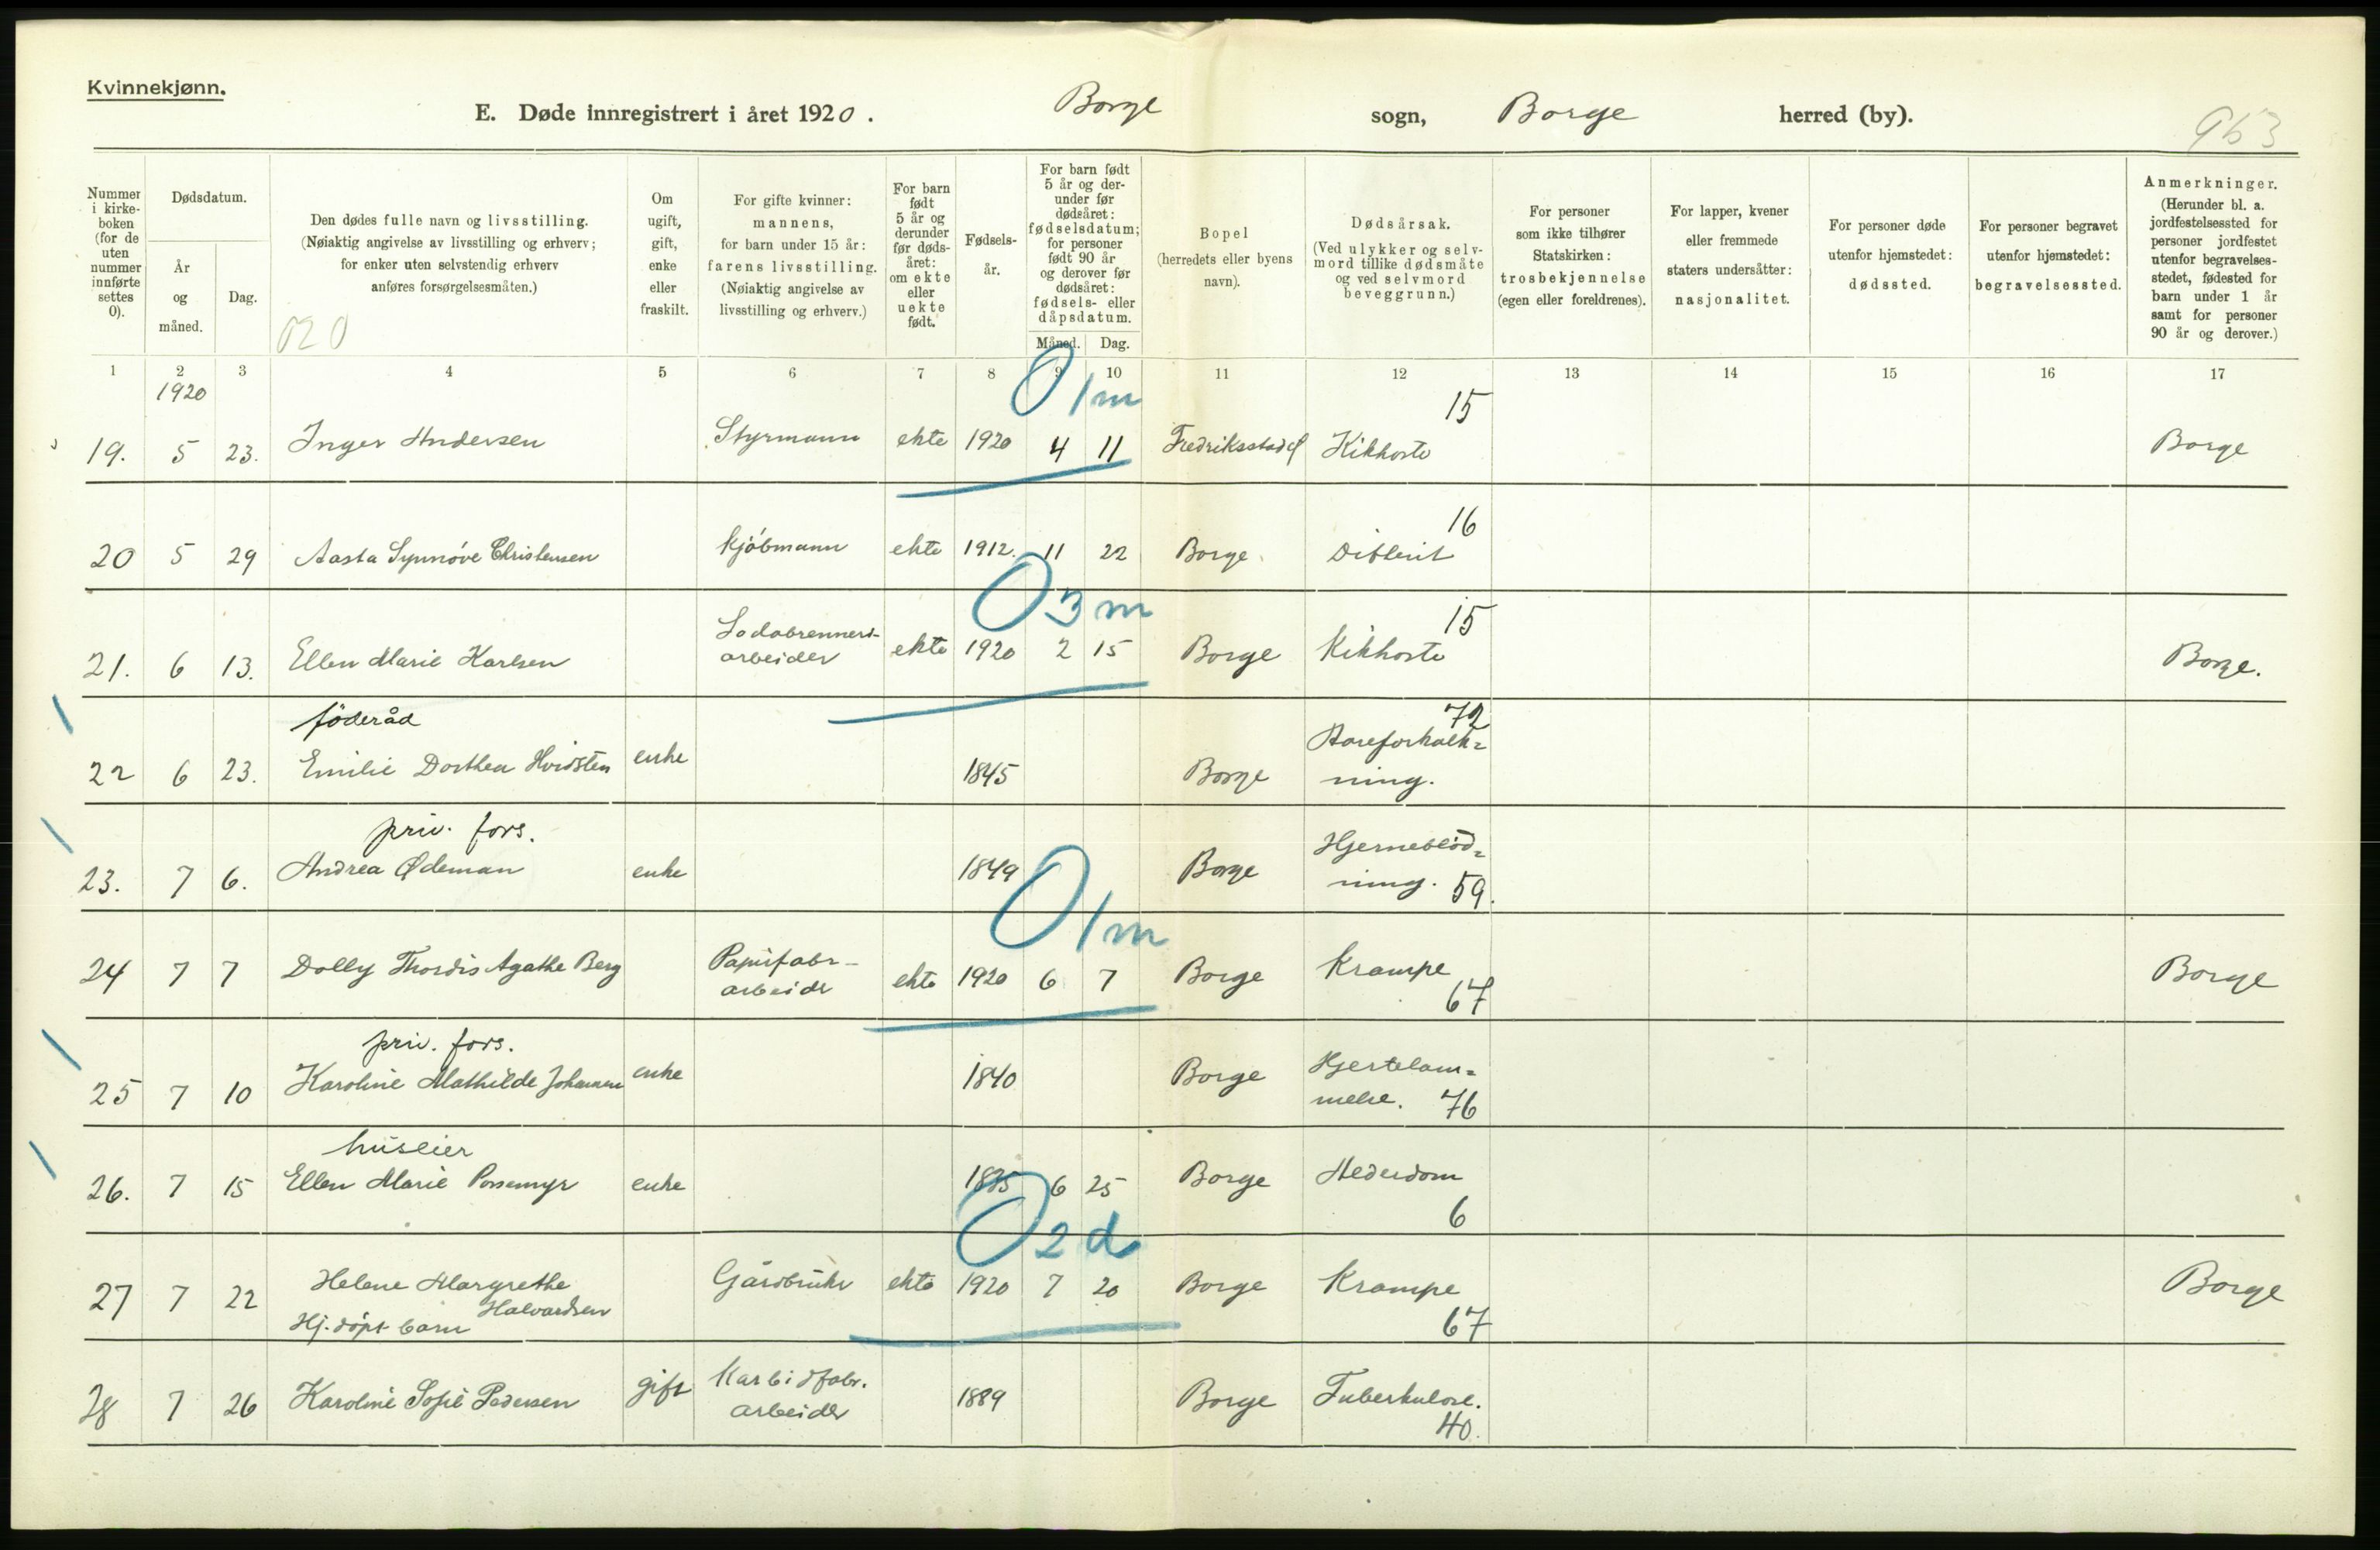 Kvinnekjønn.
E. Døde innregistrert i året 1920. Borge sogn, Borge herred (by).
963
Nummer i kirkeboken (for de uten nummer innførte settes 0).
Dødsdatum.
År og måned.
Dag.
Den dødes fulle navn og livsstilling. (Nøiaktig angivelse av livsstilling og erhverv; for enker uten selvstendig erhverv anføres forsørgelsesmåten.)
020
Om ugift, gift, enke eller fraskilt.
For gifte kvinner: mannens, for barn under 15 år: farens livsstilling. (Nøiaktig angivelse av livsstilling og erhverv.)
For barn født 5 år og derunder før dødsåret: om ekte eller uekte født.
Fødselsår.
For barn født 5 år og derunder før dødsåret: fødselsdatum; for personer født 90 år og derover før dødsåret: fødsels- eller dåpsdatum.
Måned.
Dag.
Bopel (herredets eller byens navn).
Dødsårsak. (Ved ulykker og selvmord tillike dødsmåte og ved selvmord beveggrunn.)
For personer som ikke tilhører Statskirken: trosbekjennelse (egen eller foreldrenes).
For lapper, kvener eller fremmede staters undersåtter: nasjonalitet.
For personer døde utenfor hjemstedet: dødssted.
For personer begravet utenfor hjemstedet: begravelsessted.
Anmerkninger. (Herunder bl. a. jordfestelsessted for personer jordfestet utenfor begravelsesstedet, fødested for barn under 1 år samt for personer 90 år og derover.)
1 2 3 4 5 6 7 8 9 10 11 12 13 14 15 16 17
1920
0 1 m
15
19. 5 23. Inger Andersen Styrmann ekte 1920 4 11 Fredriksstad Kikhoste Borge
16
20 5 29 Aasta Synnöve Christensen kjöbmann ekte 1912. 11 22 Borge Difterit
0 3 m
15
21. 6 13. Ellen Marie Karlsen Sodabrenneri-arbeider ekte 1920 2 15 Borge Kikhoste Borge.
föderåd
72
22 6 23. Emilie Dorthea Hvidsten enke 1845 Borge Aareforkalk=ning.
priv. fors.
23. 7 6. Andrea Ødeman enke 1849 Borge Hjerneblöd=ning. 59.
0 1 m
24 7 7 Dolly Thordis Agathe Berg Papirfabr-arbeider ekte 1920 6 7 Borge Krampe 67 Borge
priv. fors.
25 7 10 Karoline Mathilde Johansen enke 1840 Borge Hjertelam=melse. 76
huseier
26. 7 15 Ellen Marie Possemyr enke 1835 6 25 Borge Alderdom 6
0 2 d
27 7 22 Helene Margrethe Halvardsen Gårdbruker ekte 1920 7 20 Borge Krampe 67 Borge
Hj. döpt barn
28 7 26 Karoline Sofie Pedersen gift Karbidfabr. arbeider 1889 Borge Tuberkulose. 40.